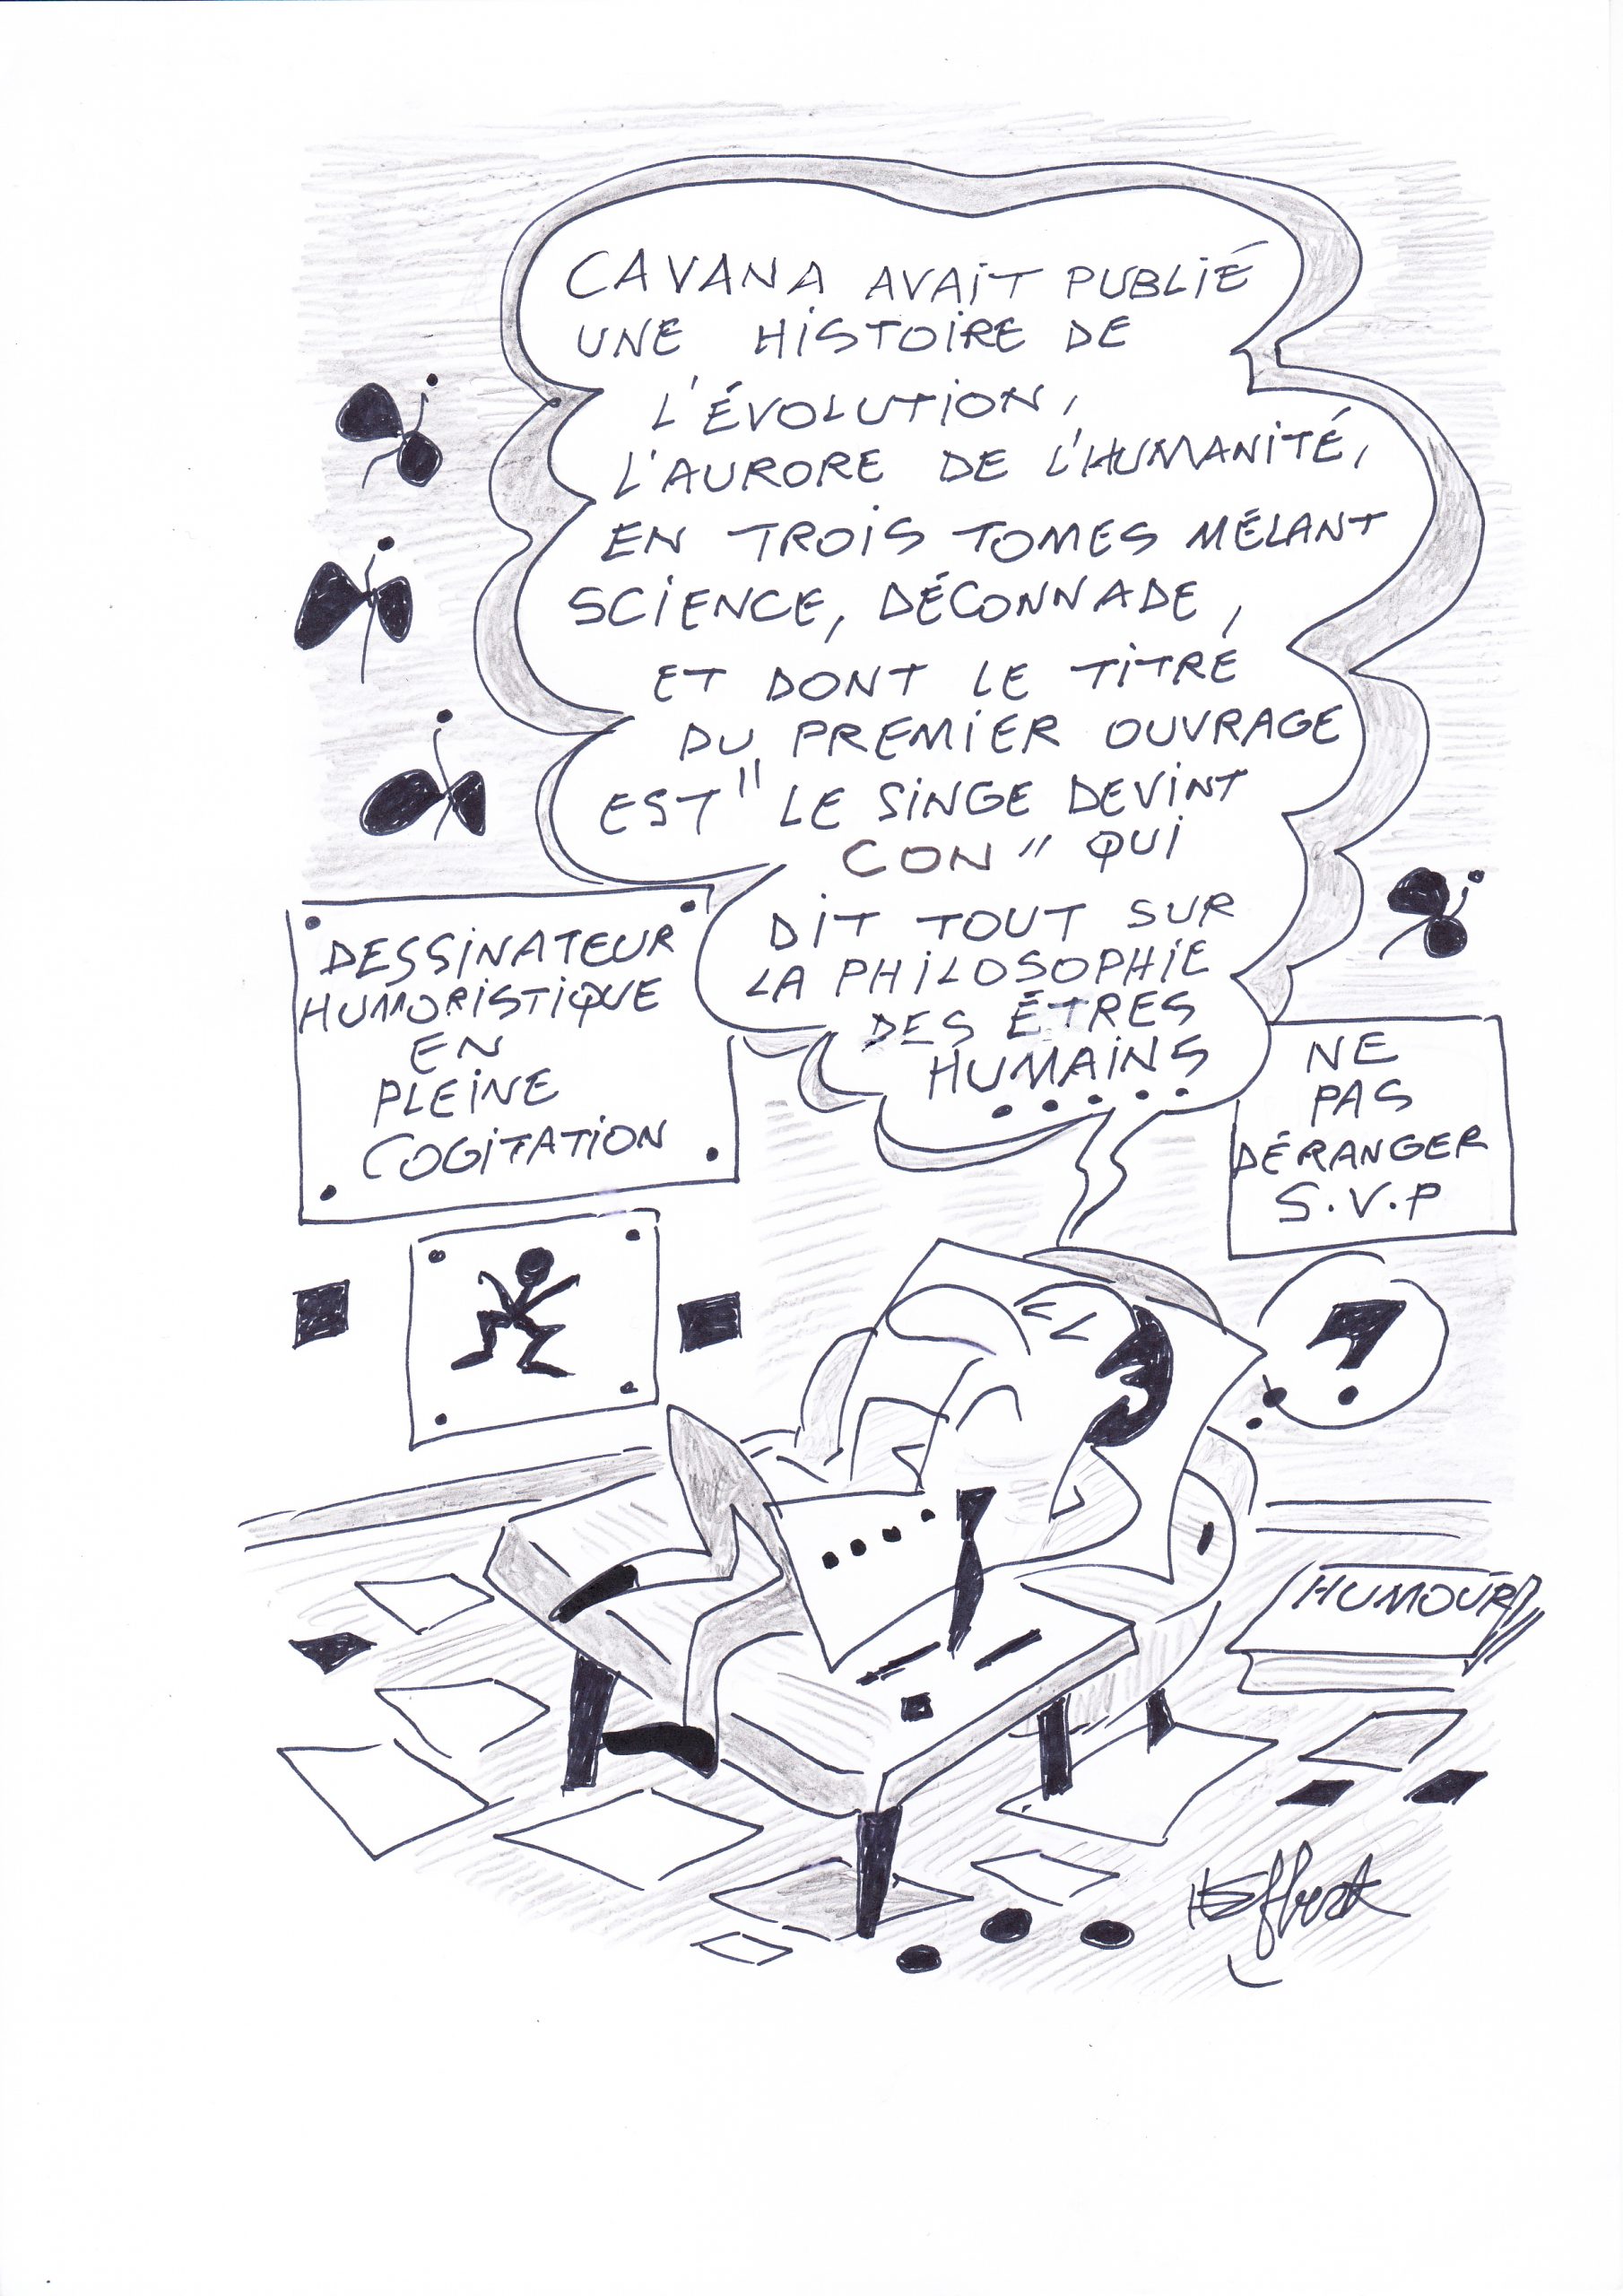 CAVANA AVAIT PUBLIÉ
UNE HISTOIRE DE
L'ÉVOLUTION,
L'AURORE DE L'HUMANITÉ,
EN TROIS TOMES MÉLANT
SCIENCE, DÉCONNADE,
ET DONT LE TITRE
DU PREMIER OUVRAGE
EST "LE SINGE DEVINT
CON" QUI
DIT TOUT SUR
LA PHILOSOPHIE
DES ÊTRES
HUMAINS
.....
DESSINATEUR
HUMORISTIQUE
EN
PLEINE
COGITATION
NE
PAS
DÉRANGER
S.V.P
?
HUMOUR